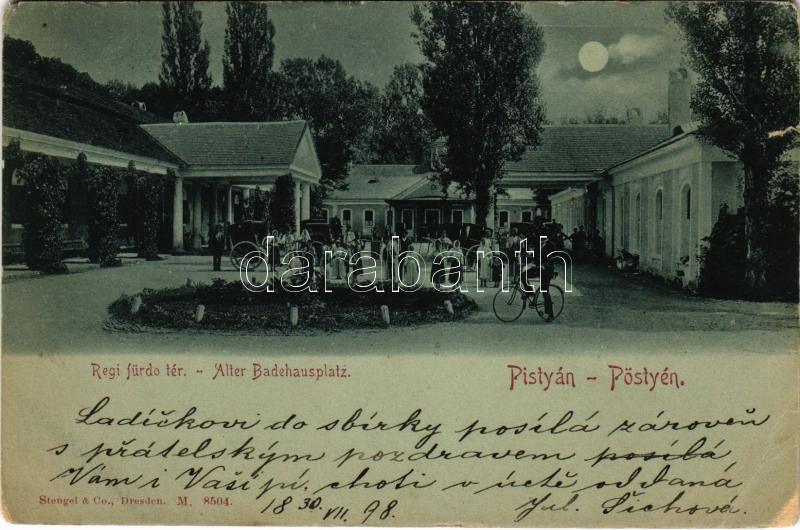 darabanth
Regi fürdo tér. - Alter Badehausplatz.
Pistyán - Pöstyén.
Ladíčkovi do sbírky posílá zároveň
s přátelským pozdravem posílá,
Vám i Vaší pí. choti v úctě oddaná
Stengel & Co., Dresden. M. 8504.
18 30/VII. 98.
Jul. Šichová.